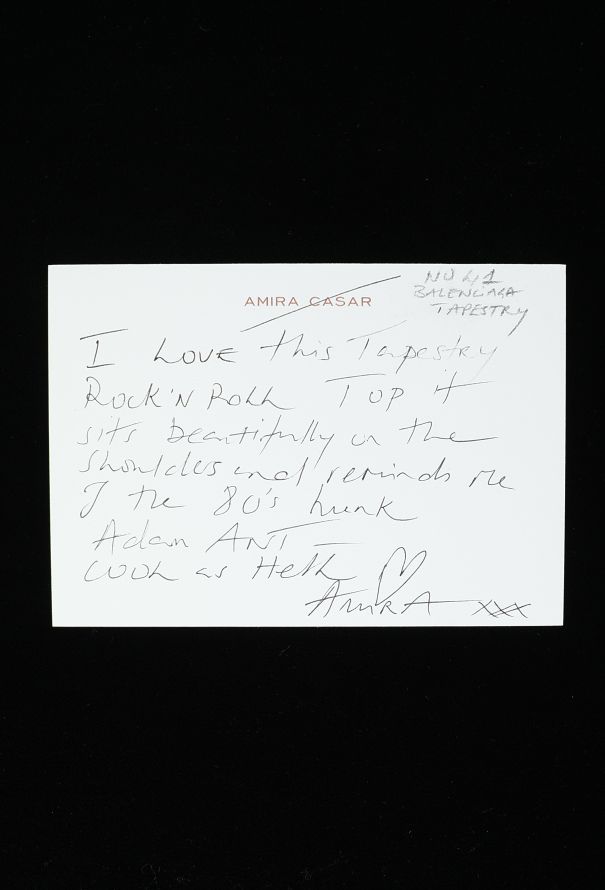 AMIRA CASAR
NO 41
BALENCIAGA
TAPESTRY
I LOVE this Tapestry
Rock 'N Roll Top it
sits beautifully on the
shoulders and reminds me
of the 80's hunk
Adam ANT —
COOL as Hell
AMIRA xxx